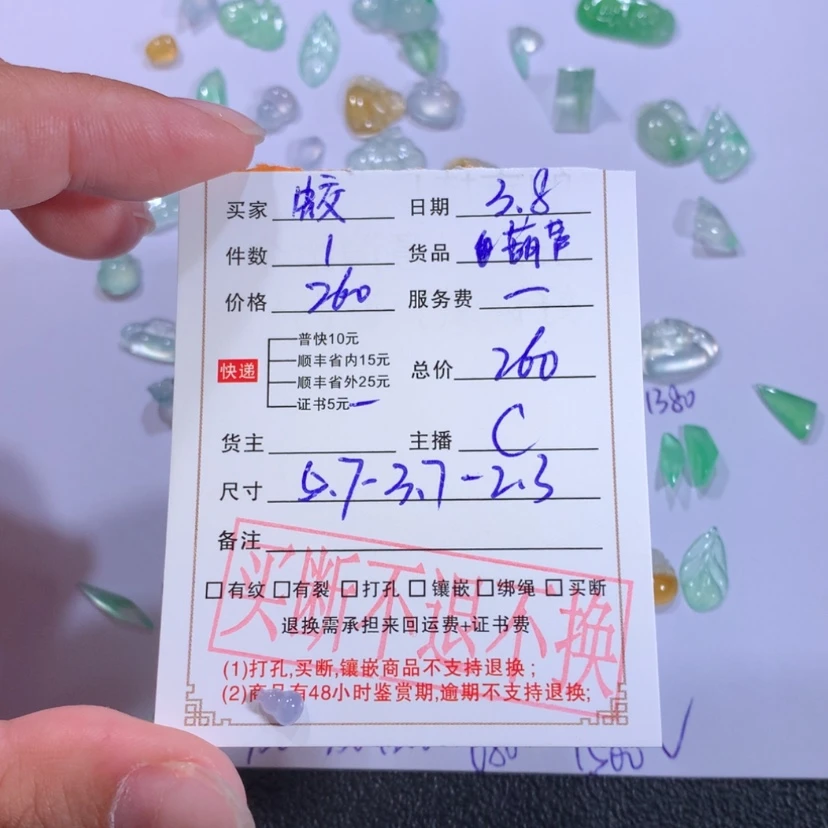 买家 蛟 日期 3.8
件数 1 货品 葫芦
价格 260 服务费 一
普快10元
顺丰省内15元
快递 总价 260
顺丰省外25元
证书5元
货主 主播 C
尺寸 5.7-3.7-2.3
备注
买断不退不换
□有纹 □有裂 □打孔 □镶嵌 □绑绳 □买断
退换需承担来回运费+证书费
(1)打孔,买断,镶嵌商品不支持退换;
(2)商品有48小时鉴赏期,逾期不支持退换;
1380
680 1580